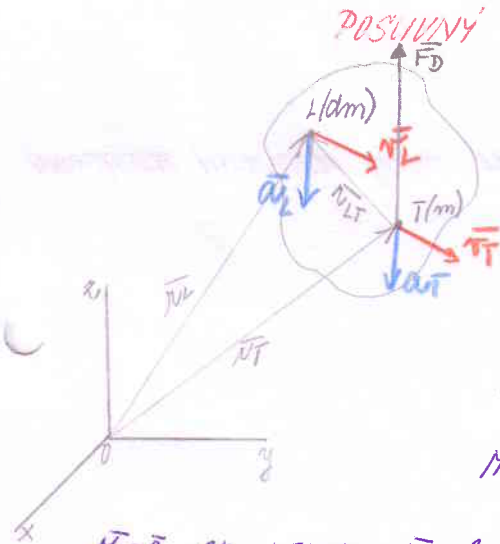 POSUVNÝ
F̄_D
L(dm)
v̄_L
ā_L
r̄_LT
T(m)
v̄_T
ā_T
r̄_L
r̄_T
z
0
y
x